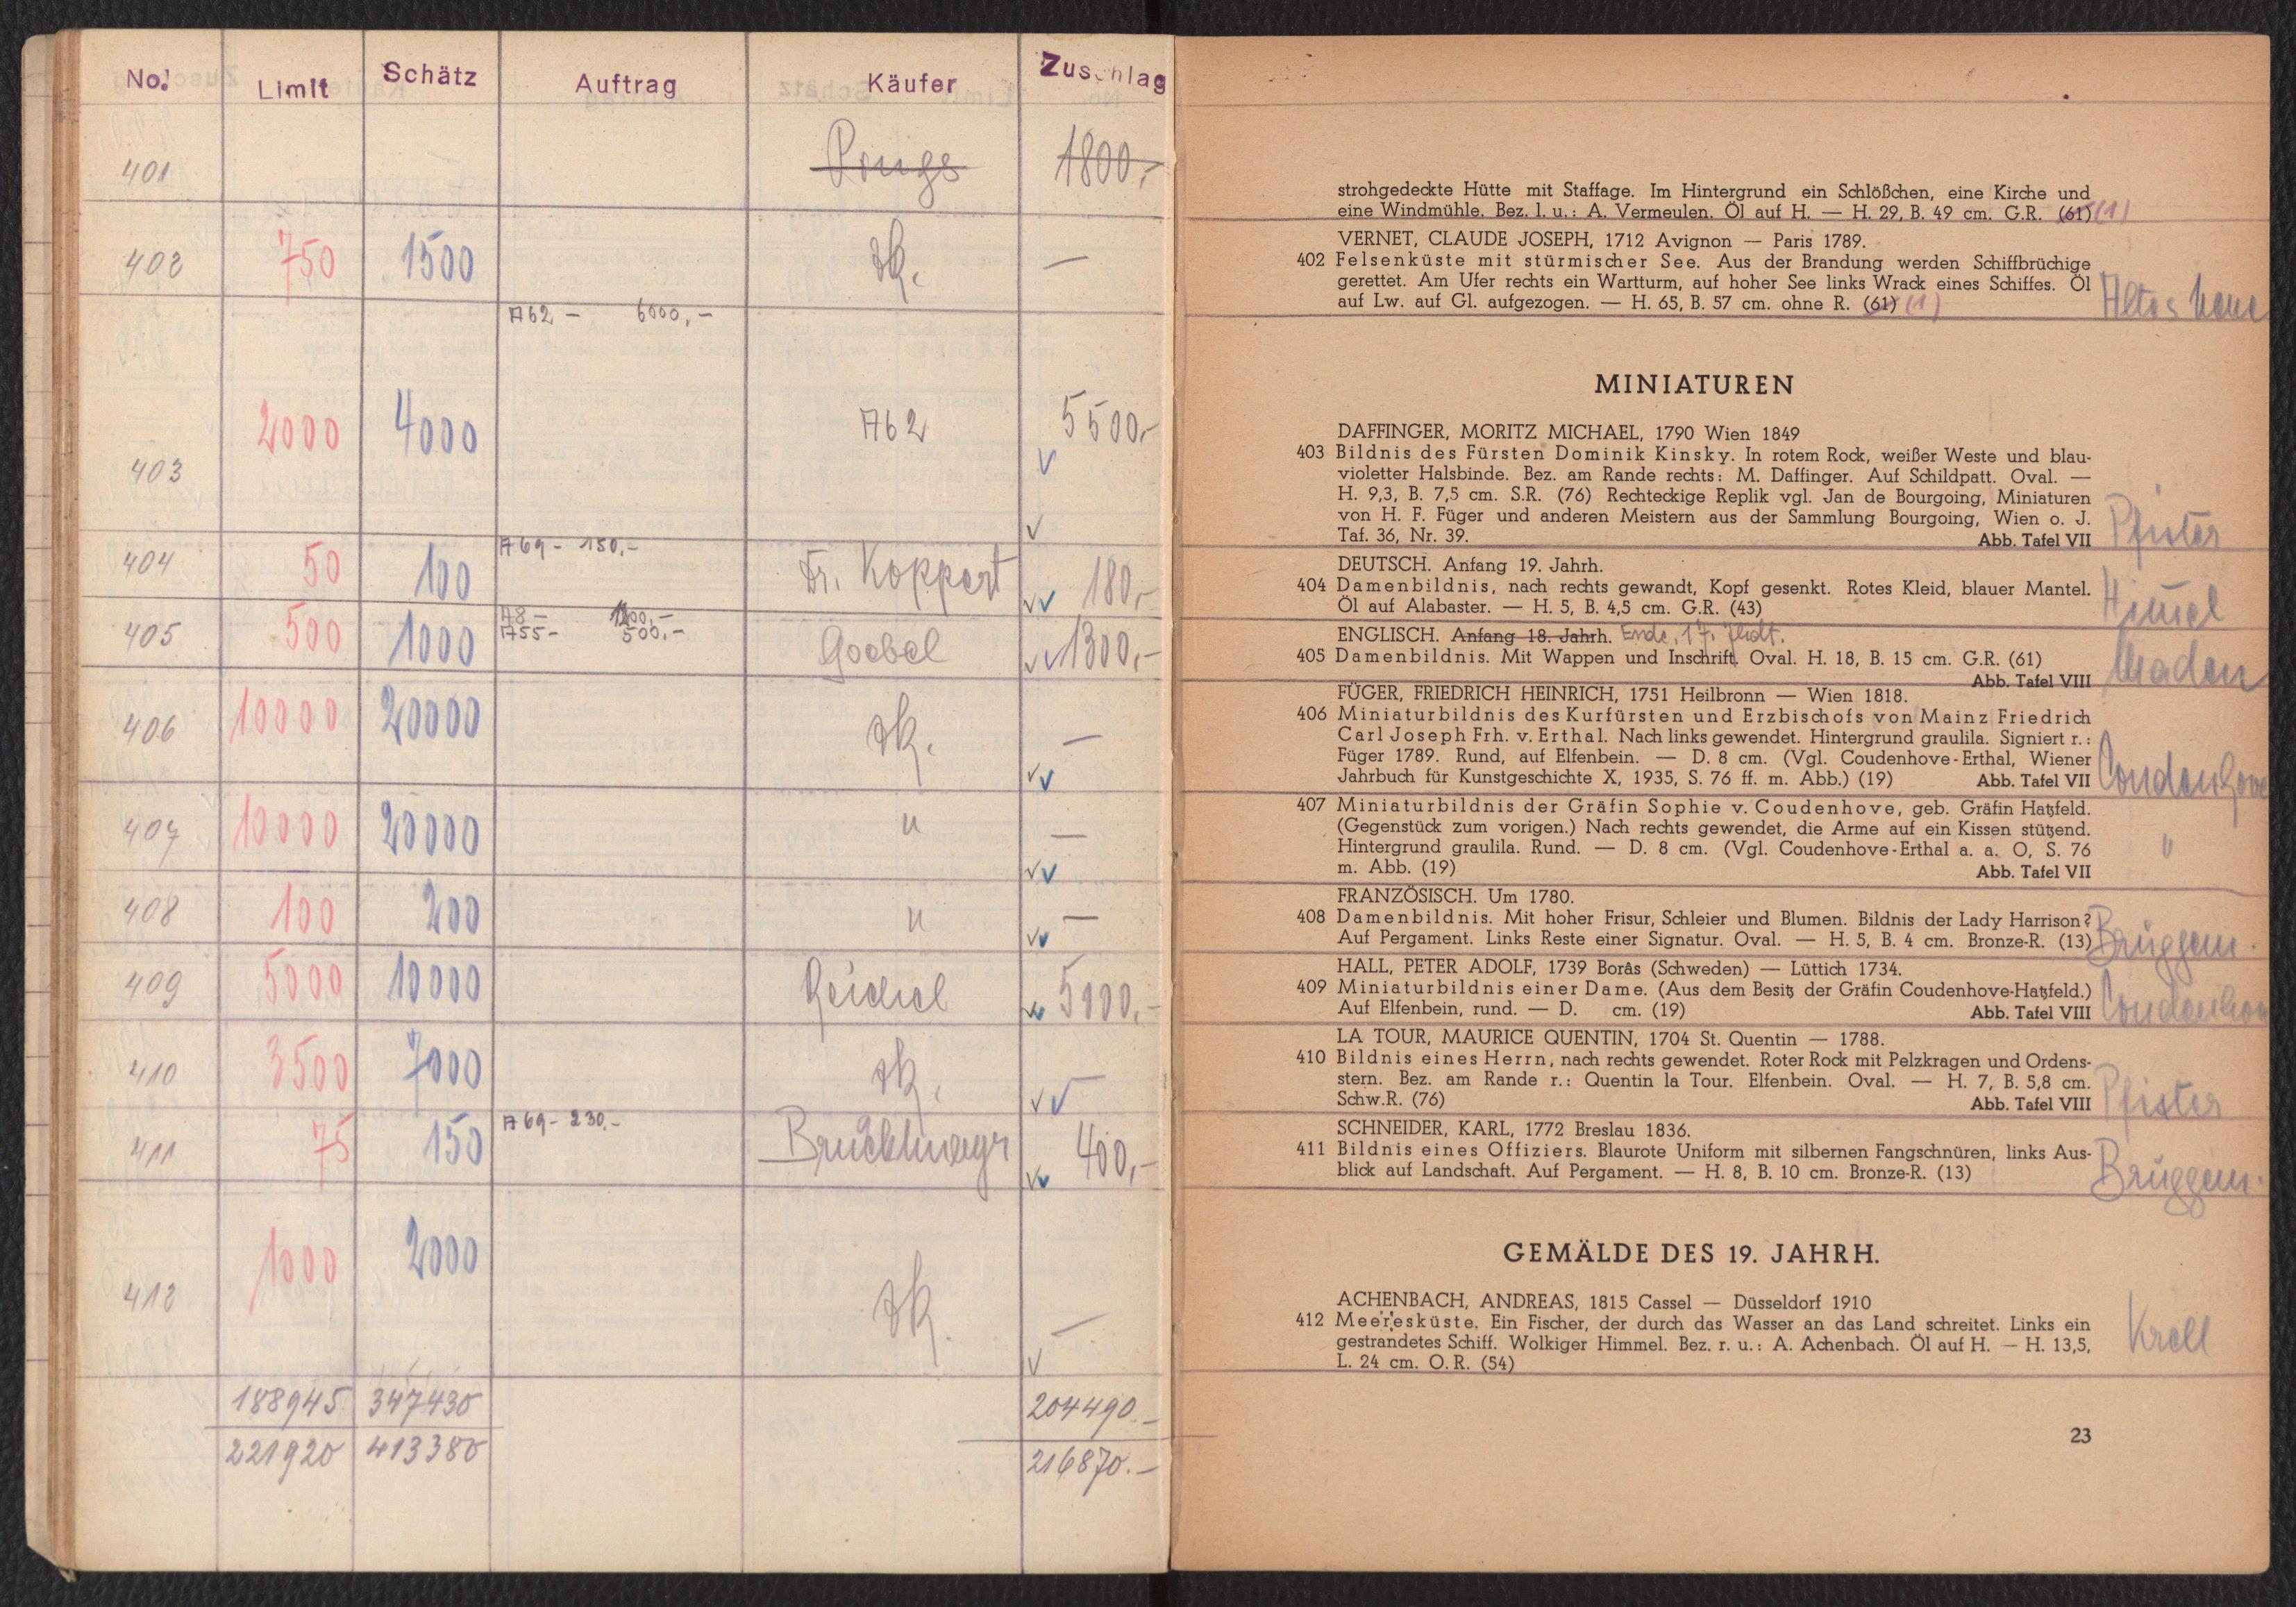 No. Limit Schätz Auftrag Käufer Zuschlag
401 Pongs 1800,-
402 750 1500 zk. —
A62 - 6000,-
403 2000 4000 A62 5500,-
404 50 100 A69 - 150,- Dr. Koppert 180,-
405 500 1000 A8 -
A55 - 500,- Goebel 1300,-
406 10000 20000 zk. —
407 10000 20000 " —
408 100 200 " —
409 5000 10000 Reichel 5100,-
410 3500 7000 zk. —
411 75 150 A69 - 230,- Bruckmayr 400,-
412 1000 2000 zk. —
188945 347430 204490.-
221920 413380 216870.-
strohgedeckte Hütte mit Staffage. Im Hintergrund ein Schlößchen, eine Kirche und
eine Windmühle. Bez. l. u.: A. Vermeulen. Öl auf H. — H. 29, B. 49 cm. G.R. (61) (1)
VERNET, CLAUDE JOSEPH, 1712 Avignon — Paris 1789.
402 Felsenküste mit stürmischer See. Aus der Brandung werden Schiffbrüchige
gerettet. Am Ufer rechts ein Wartturm, auf hoher See links Wrack eines Schiffes. Öl
auf Lw. auf Gl. aufgezogen. — H. 65, B. 57 cm. ohne R. (61) (1)
MINIATUREN
DAFFINGER, MORITZ MICHAEL, 1790 Wien 1849
403 Bildnis des Fürsten Dominik Kinsky. In rotem Rock, weißer Weste und blau-
violetter Halsbinde. Bez. am Rande rechts: M. Daffinger. Auf Schildpatt. Oval. —
H. 9,3, B. 7,5 cm. S.R. (76) Rechteckige Replik vgl. Jan de Bourgoing, Miniaturen
von H. F. Füger und anderen Meistern aus der Sammlung Bourgoing, Wien o. J.
Taf. 36, Nr. 39. Abb. Tafel VII Pfister
DEUTSCH. Anfang 19. Jahrh.
404 Damenbildnis, nach rechts gewandt, Kopf gesenkt. Rotes Kleid, blauer Mantel.
Öl auf Alabaster. — H. 5, B. 4,5 cm. G.R. (43)
ENGLISCH. Anfang 18. Jahrh. Ende. 17. Jhdt.
405 Damenbildnis. Mit Wappen und Inschrift. Oval. H. 18, B. 15 cm. G.R. (61)
Abb. Tafel VIII
FÜGER, FRIEDRICH HEINRICH, 1751 Heilbronn — Wien 1818.
406 Miniaturbildnis des Kurfürsten und Erzbischofs von Mainz Friedrich
Carl Joseph Frh. v. Erthal. Nach links gewendet. Hintergrund graulila. Signiert r.:
Füger 1789. Rund, auf Elfenbein. — D. 8 cm. (Vgl. Coudenhove-Erthal, Wiener
Jahrbuch für Kunstgeschichte X, 1935, S. 76 ff. m. Abb.) (19) Abb. Tafel VII Coudenhove
407 Miniaturbildnis der Gräfin Sophie v. Coudenhove, geb. Gräfin Hatzfeld.
(Gegenstück zum vorigen.) Nach rechts gewendet, die Arme auf ein Kissen stützend.
Hintergrund graulila. Rund. — D. 8 cm. (Vgl. Coudenhove-Erthal a. a. O, S. 76 "
m. Abb. (19) Abb. Tafel VII
FRANZÖSISCH. Um 1780.
408 Damenbildnis. Mit hoher Frisur, Schleier und Blumen. Bildnis der Lady Harrison?
Auf Pergament. Links Reste einer Signatur. Oval. — H. 5, B. 4 cm. Bronze-R. (13) Brüggem.
HALL, PETER ADOLF, 1739 Borås (Schweden) — Lüttich 1734.
409 Miniaturbildnis einer Dame. (Aus dem Besitz der Gräfin Coudenhove-Hatzfeld.)
Auf Elfenbein, rund. — D. cm. (19) Abb. Tafel VIII Coudenhov
LA TOUR, MAURICE QUENTIN, 1704 St. Quentin — 1788.
410 Bildnis eines Herrn, nach rechts gewendet. Roter Rock mit Pelzkragen und Ordens-
stern. Bez. am Rande r.: Quentin la Tour. Elfenbein. Oval. — H. 7, B. 5,8 cm.
Schw.R. (76) Abb. Tafel VIII Pfister
SCHNEIDER, KARL, 1772 Breslau 1836.
411 Bildnis eines Offiziers. Blaurote Uniform mit silbernen Fangschnüren, links Aus-
blick auf Landschaft. Auf Pergament. — H. 8, B. 10 cm. Bronze-R. (13) Brüggem.
GEMÄLDE DES 19. JAHRH.
ACHENBACH, ANDREAS, 1815 Cassel — Düsseldorf 1910
412 Meeresküste. Ein Fischer, der durch das Wasser an das Land schreitet. Links ein
gestrandetes Schiff. Wolkiger Himmel. Bez. r. u.: A. Achenbach. Öl auf H. — H. 13,5, Krell
L. 24 cm. O.R. (54)
23